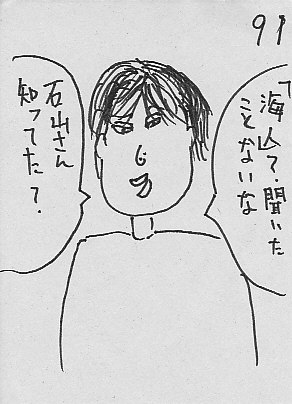 91
「海山て・聞いた
ことないな
石山さん
知ってた?